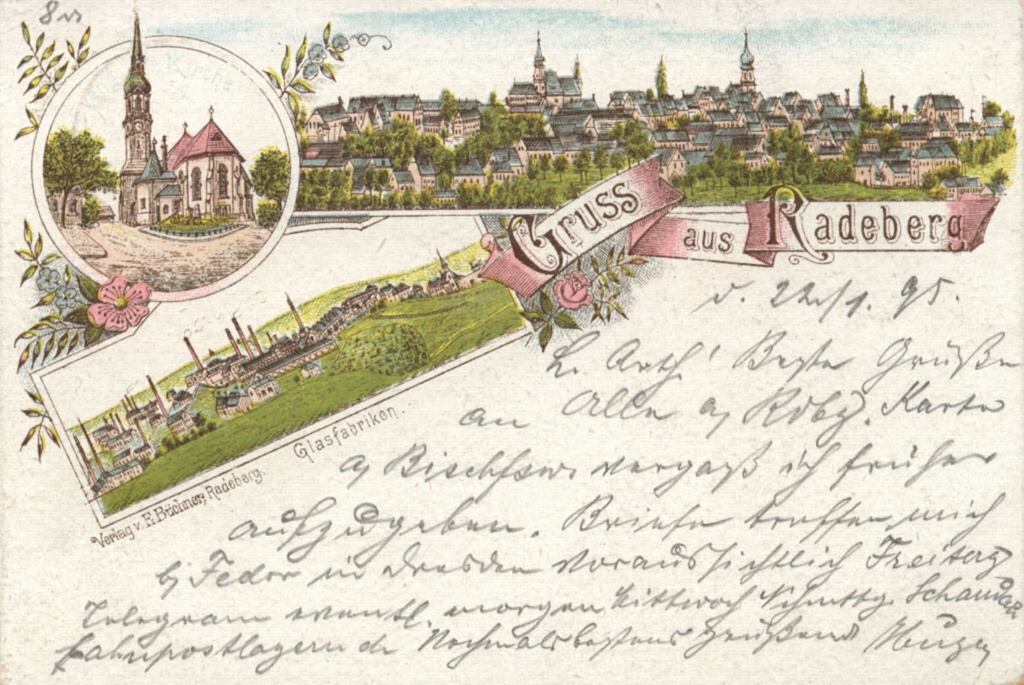 Kirche
Gruss aus Radeberg
Glasfabriken.
Verlag v. E. Büchner, Radeberg.
d. 22./1. 95.
L. Arth! Beste Grüße
an Alle a/ Rdbg. Karte
a/ Bischfsw. vergaß ich früher
aufzugeben. Briefe treffen mich
b/ Fedor in Dresden voraussichtlich Freitag
Telegram eventl. morgen Mittwoch Nchmttg. Schandau
bahnpostlagernd. Nochmals bestens grüßend